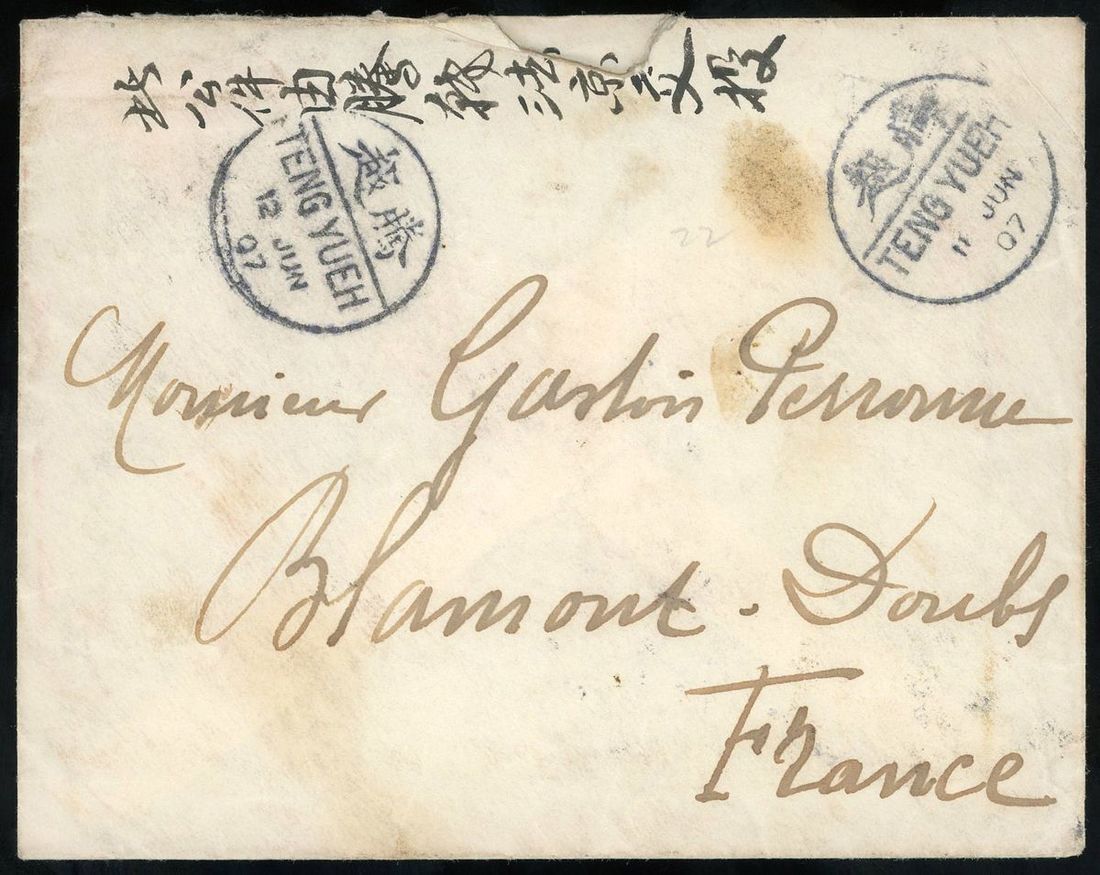 此公件由騰 法京交投
越騰
TENG YUEH
12 JUN
07
越騰
TENG YUEH
11 JUN
07
22
Monsieur Gaston Perronne
Blamont - Doubs
France